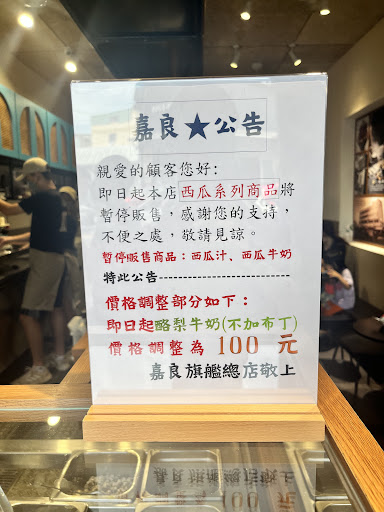 嘉良★公告
親愛的顧客您好:
即日起本店西瓜系列商品將
暫停販售，感謝您的支持，
不便之處，敬請見諒。
暫停販售商品：西瓜汁、西瓜牛奶
特此公告----------------------------
價格調整部分如下：
即日起酪梨牛奶(不加布丁)
價格調整為 100 元
嘉良旗艦總店敬上